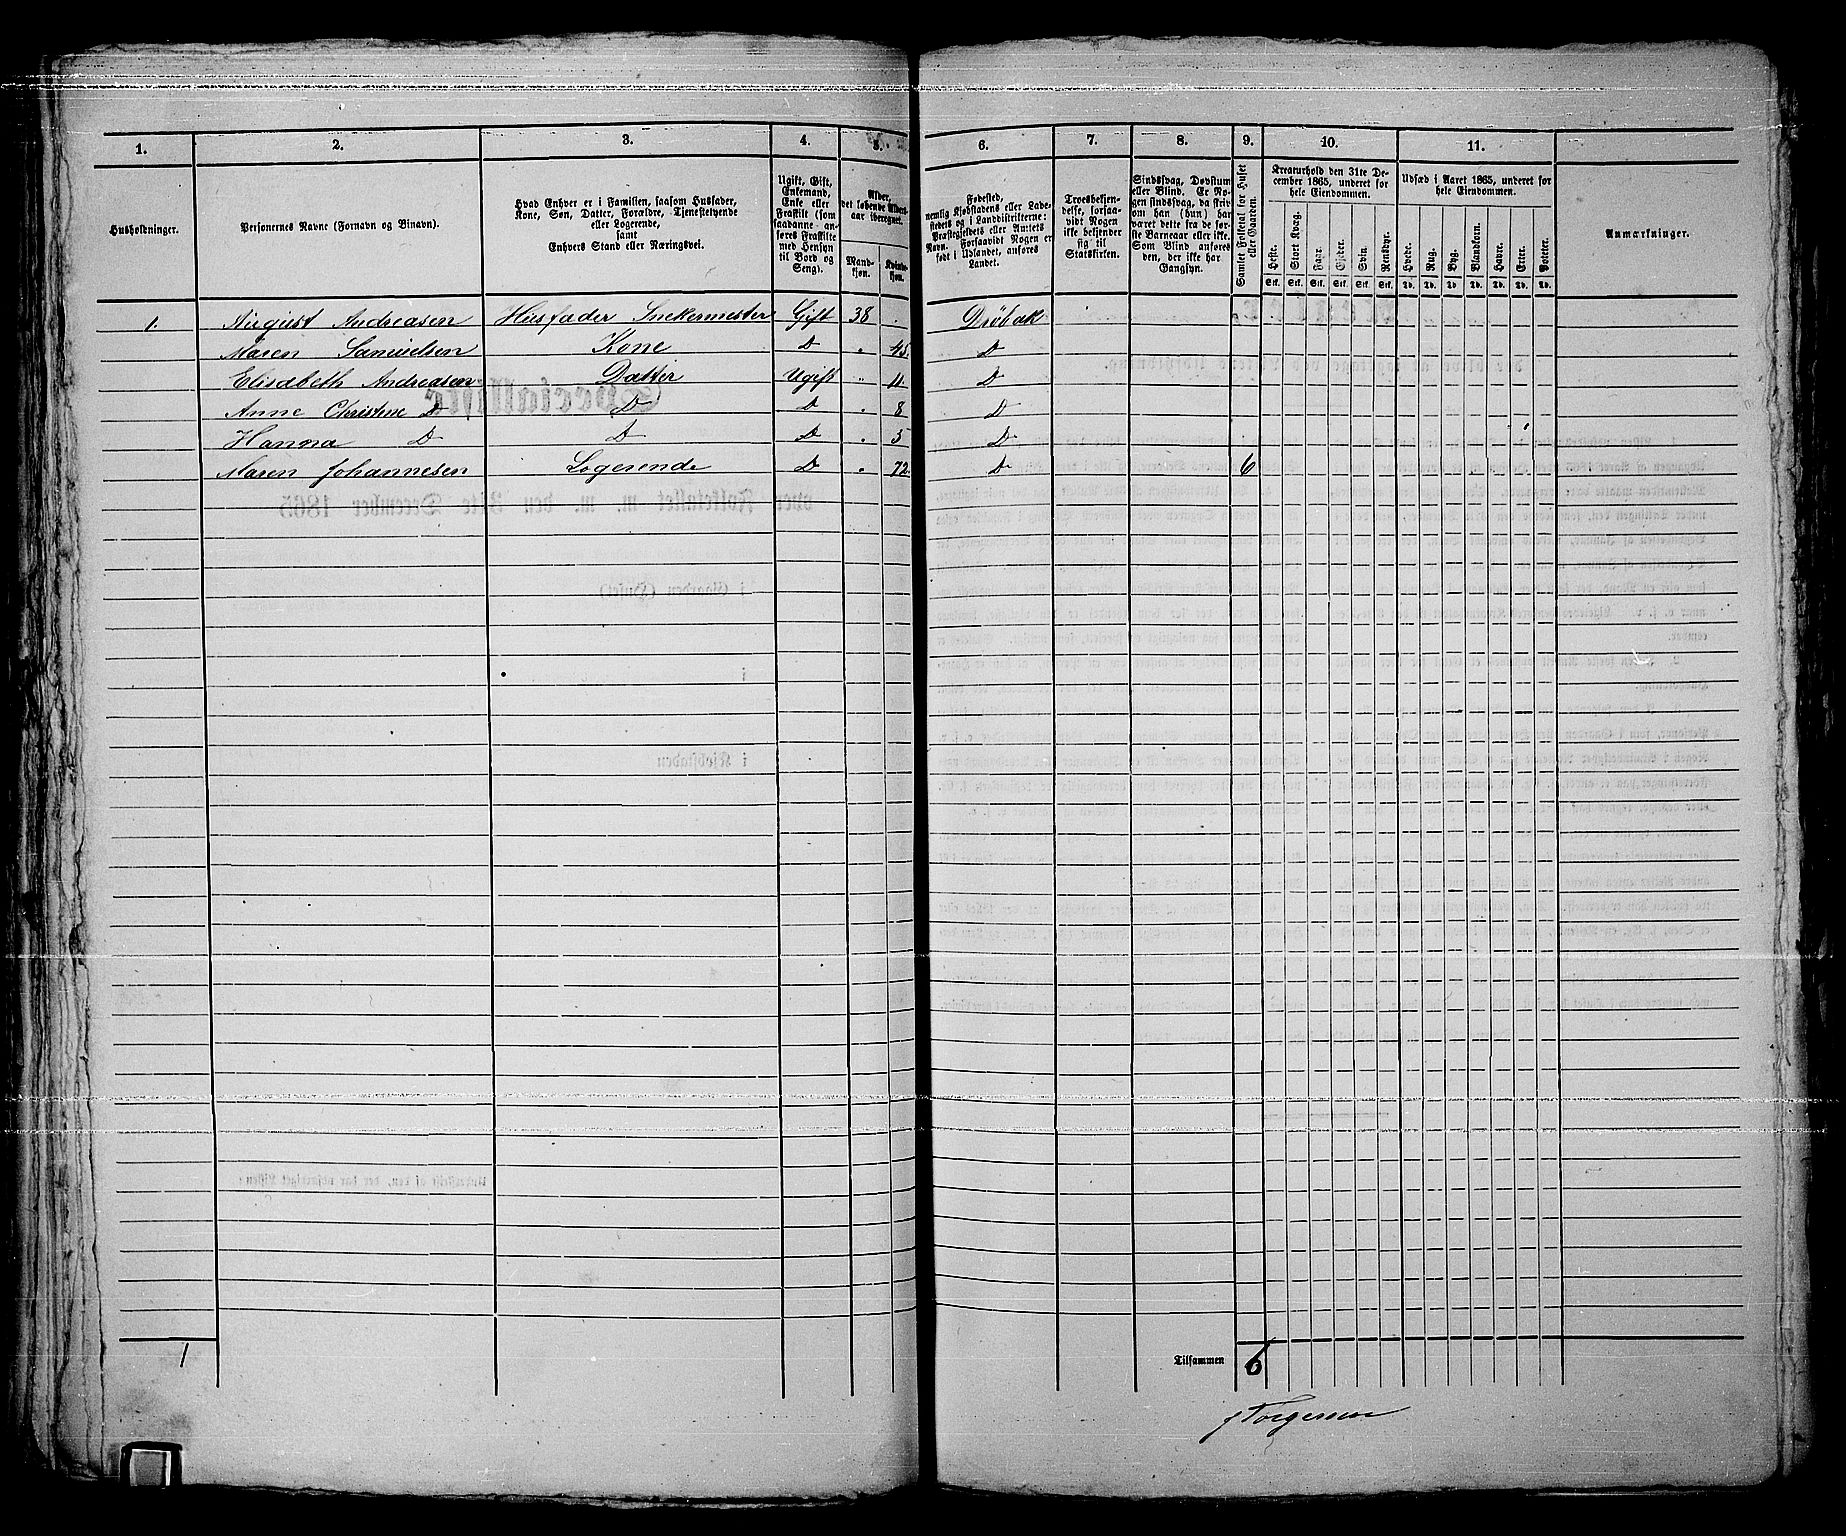 1. 2. 3. 4. 5. 6. 7. 8. 9. 10. 11.
Husholdninger.
Personernes Navne (Fornavn og Binavn).
Hvad Enhver er i Familien, saasom Husfader,
Kone, Søn, Datter, Forældre, Tjenestetyende
eller Logerende,
samt
Enhvers Stand eller Næringsvei.
Ugift, Gift,
Enkemand,
Enke eller
Fraskilt (som
saadanne anføres
Fraskilte
med Hensyn
til Bord og
Seng).
Alder,
det løbende Alders-
aar iberegnet.
Mand-
kjøn.
Kvinde-
kjøn.
Fødested,
nemlig Kjøbstadens eller Lade-
stedets og i Landdistrikterne:
Præstegjeldets eller Amtets
Navn. Forsaavidt Nogen er
født i Udlandet, anføres
Landet.
Troesbekjen-
delse, forsaa-
vidt Nogen
ikke bekjender
sig til
Statskirken.
Sindssvag, Døvstum
eller Blind. Er No-
gen sindssvag, da skriv
om han (hun) har
været dette fra de før-
ste Barneaar eller ikke.
Som Blind anføres
den, der ikke har
Gangsyn.
Samlet Folketal for Huset
eller Gaarden.
Kreaturhold den 31te De-
cember 1865, underet for
hele Eiendommen.
Heste. Stort Kvæg. Faar. Gjeder. Svin. Rensdyr.
Stk. Stk. Stk. Stk. Stk. Stk.
Udsæd i Aaret 1865, underet for
hele Eiendommen.
Hvede. Rug. Byg. Blandkorn. Havre. Erter. Poteter.
Td. Td. Td. Td. Td. Td. Td.
Anmærkninger.
1. August Andreasen Husfader Snekermester Gift 38 . Drøbak
Maren Samuelsen Kone D " 45. D
Elisabeth Andreasen Datter Ugift " 11. D
Anne Christine D D D " 8 D
Hanna D D D " 5 D
Maren Johannesen Logerende D " 72. D 6
1 Tilsammen 6